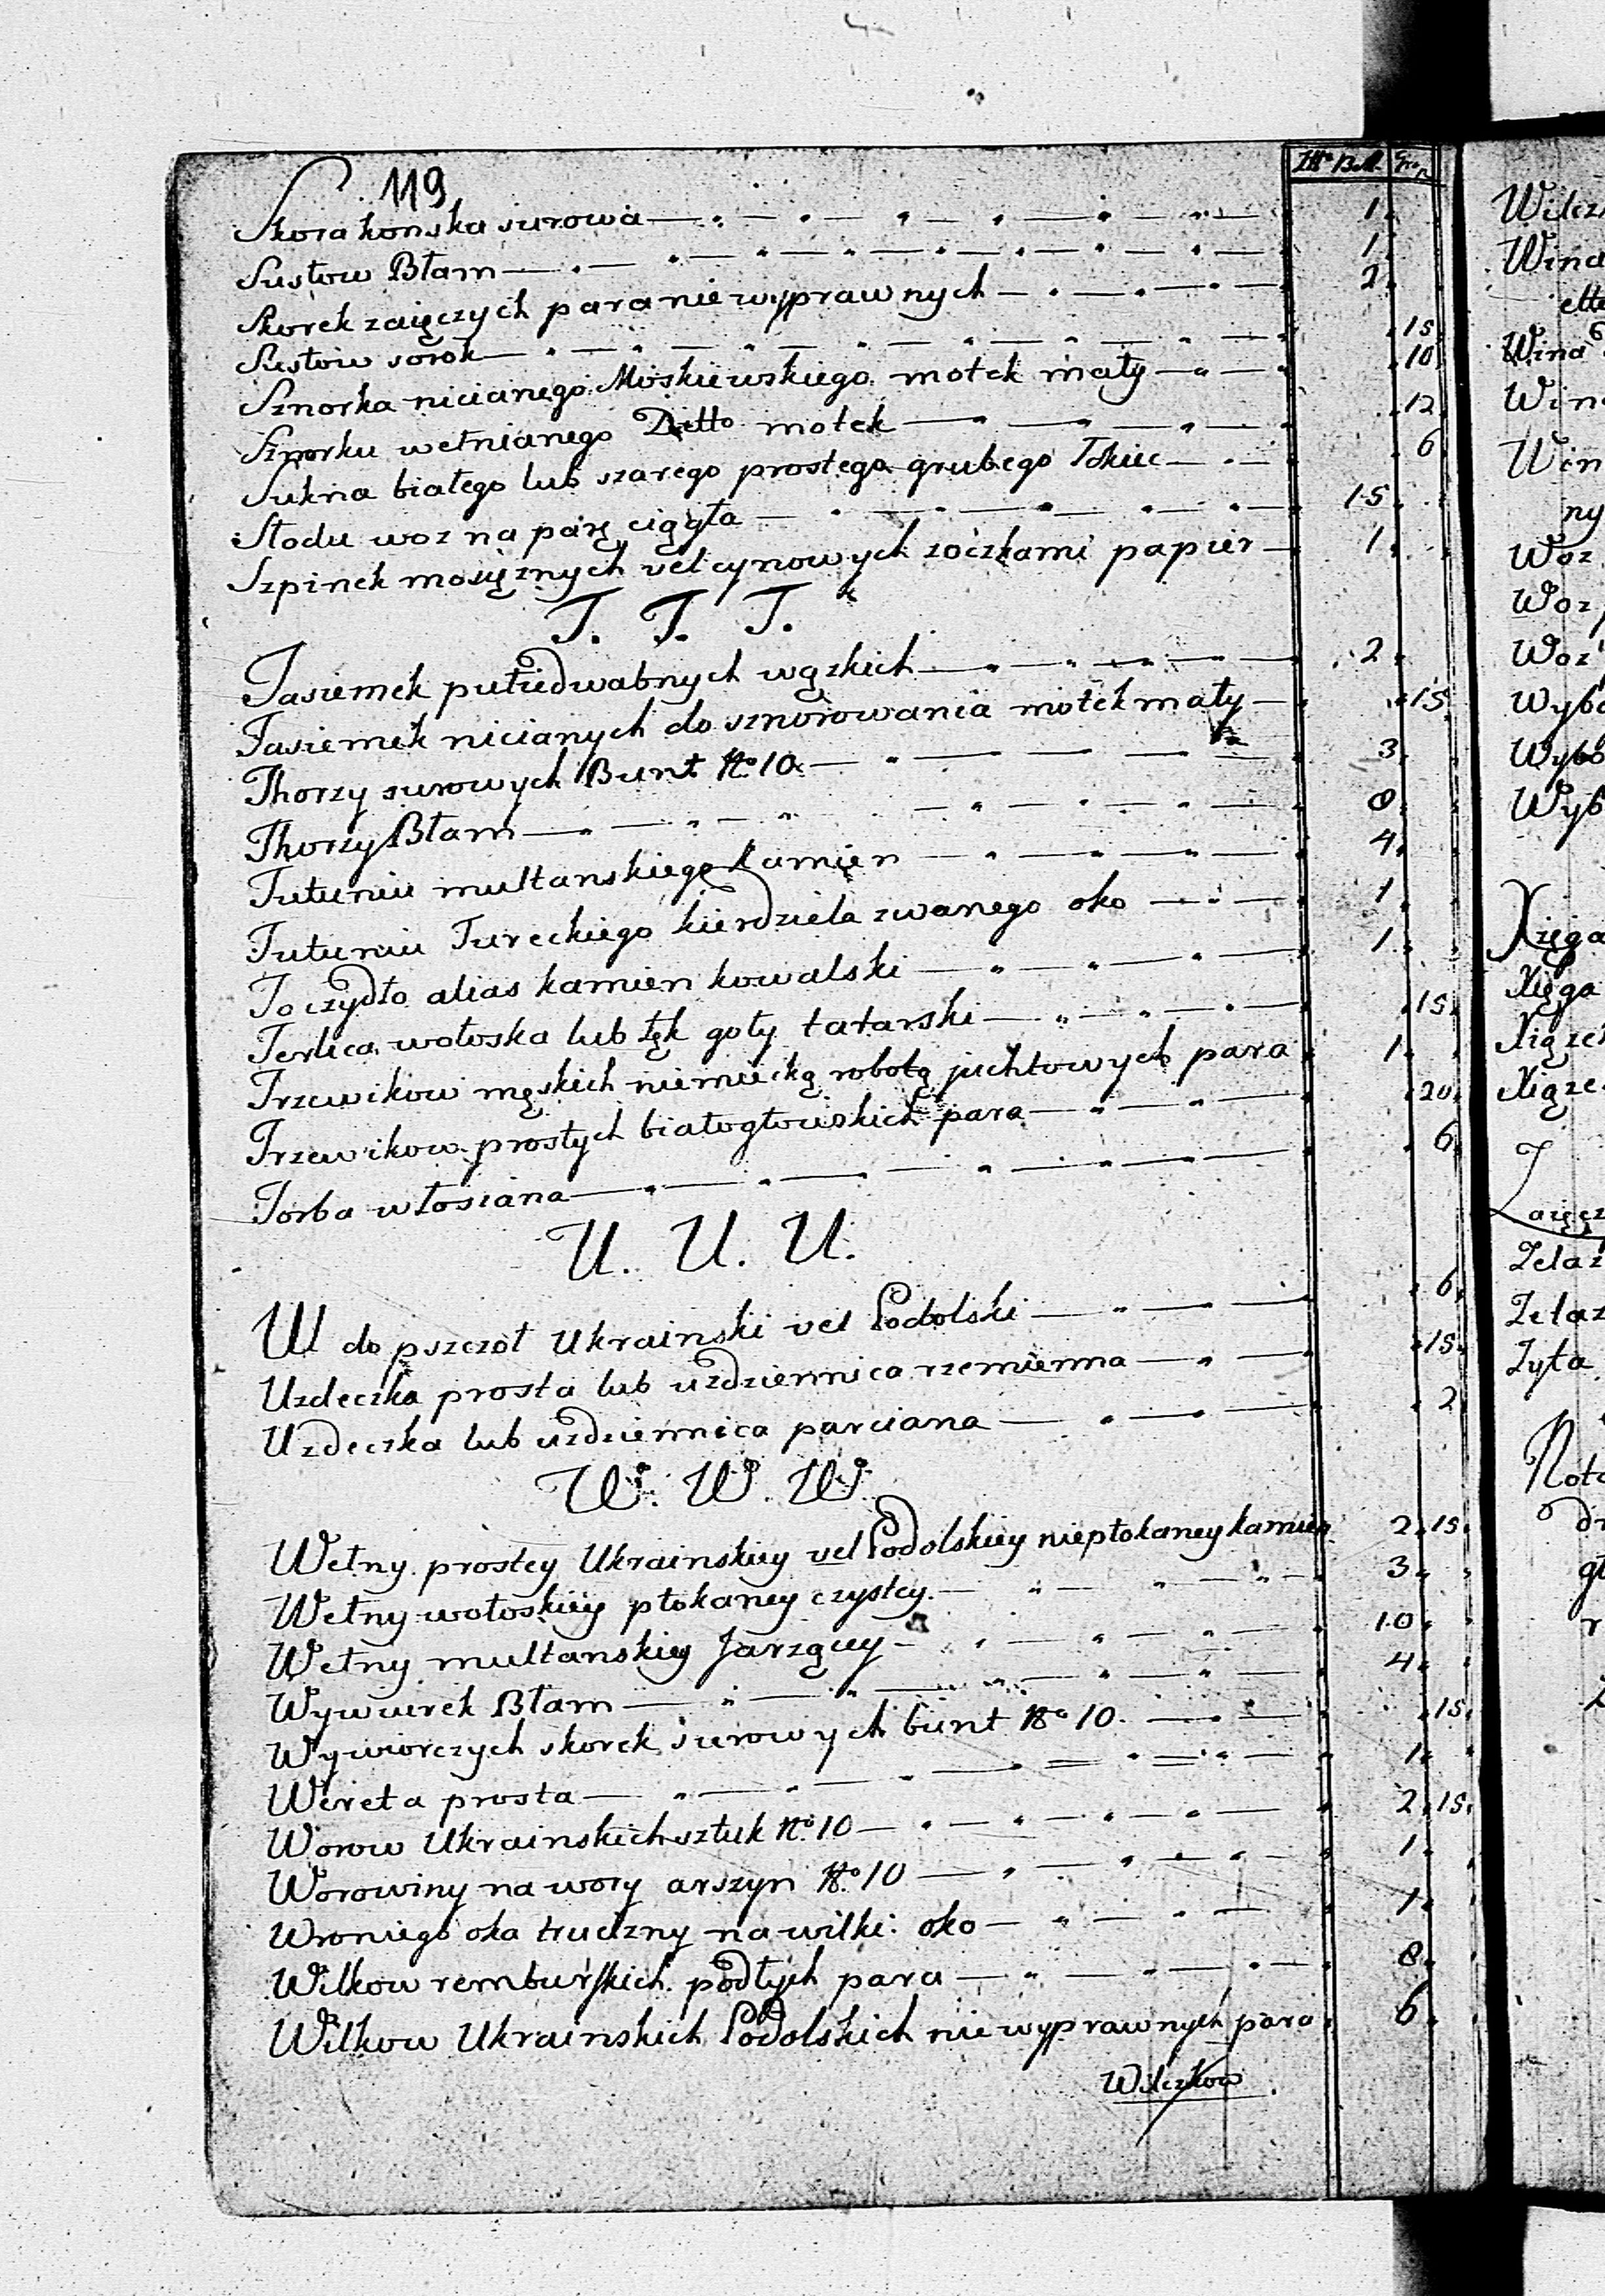 119
Złłº Bell. Gro.
Skora konska surowa 1.
Susłow Błam 1.
Skorek zaięczych para nie wyprawnych 2.
Susłow sorok 15.
Sznorka nicianego Moskiewskiego motek mały 10.
Sznorku wełnianego Ditto motek 12.
Sukna białego lub szarego prostego grubego łokiec 6.
Słodu woz na parę ciągła 15.
Szpinek mosięznych vel cynowych z oczkami papier 1.
T. T. T.
Tasiemek pułiedwabnych wązkich 2.
Tasiemek nicianych do sznorowania motek mały 15.
Thorzy surowych Bunt Nº 10 3.
Thorzy Błam 8.
Tutuniu multanskiego kamien 4.
Tutuniu Tureckiego kierdziela zwanego oko 1.
Toczydło alias kamien kowalski 1.
Terlica wołoska lub łęk goły tatarski 15.
Trzewikow męskich niemiecką robotą juchtowych para 1.
Trzewikow prostych białogłowskich para 20.
Torba włosiana 6.
U. U. U.
Ul do pszczoł Ukrainski vel Podolski 6.
Uzdeczka prosta lub uzdziennica rzemienna 15.
Uzdeczka lub uzdziennica parciana 2.
W. W. W.
Wełny prostey Ukrainskiey vel Podolskiey niepłokaney kamien 2. 15.
Wełny wołoskiey płokaney czystey 3.
Wełny multanskiey Jarzącey 10.
Wywiurek Błam 4.
Wywiorczych skorek surowych bunt Nº 10. 15.
Wereta prosta 1.
Worow Ukrainskich sztuk Nº 10 2. 15.
Worowiny na wory arszyn Nº 10 1.
Wroniego oka trucizny na wilki oko 1.
Wilkow remburskich podłych para 8.
Wilkow Ukrainskich Podolskich nie wyprawnych para 6.
Wilczkow
Wina
Wina
Woz
Woz
Woz
Xięga
Xięga
Żyta